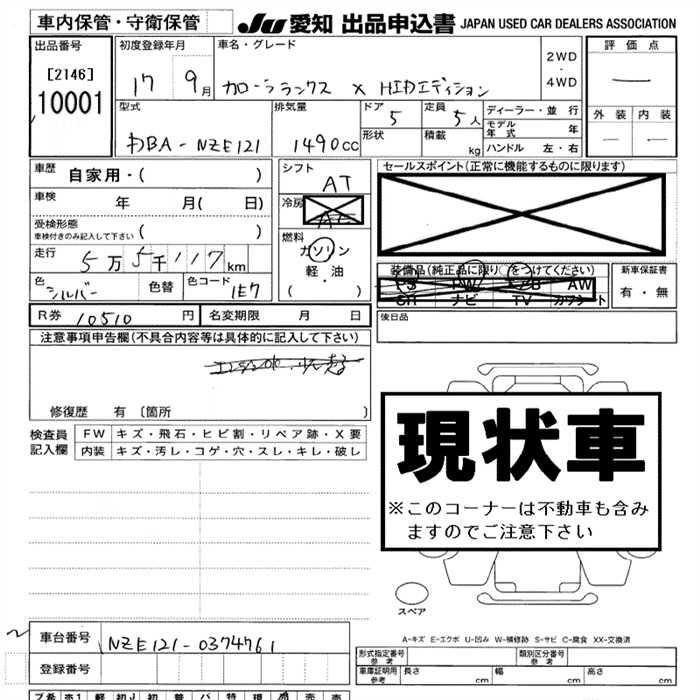 車内保管・守衛保管 JU 愛知 出品申込書 JAPAN USED CAR DEALERS ASSOCIATION
出品番号 初度登録年月 車名・グレード 評価点
[2146] 10001 17 9月 カローラランクス X HIDエディション 2WD・4WD —
型式 排気量 ドア 定員 ディーラー・並行 外装 内装
DBA-NZE121 1490cc 5 5人 モデル年式 年 — —
形状 積載 kg ハンドル 左・右
車歴 自家用・( ) シフト AT セールスポイント(正常に機能するものに限ります)
車検 年 月( 日) 冷房
受検形態 車検付きのみ記入して下さい ( ) 燃料 ガソリン・軽・油・( )
走行 5万5千117km 装備品(純正品に限り○をつけてください) 新車保証書
色 シルバー 色替 色コード 1E7 PS PW AB AW 有・無
SR ナビ TV カワシート
R券 10510円 名変期限 月 日 後日品
注意事項申告欄(不具合内容等は具体的に記入して下さい)
修復歴 有 〔箇所 〕
検査員記入欄 FW キズ・飛石・ヒビ割・リペア跡・X要
内装 キズ・汚レ・コゲ・穴・スレ・キレ・破レ
現状車
※このコーナーは不動車も含み
ますのでご注意下さい
スペア
A-キズ E-エクボ U-凹み W-補修跡 S-サビ C-腐食 XX-交換済
車台番号 NZE121-0374761 形式指定番号 参考 類別区分番号 参考
登録番号 車庫証明用 参考 長さ cm 幅 cm 高さ cm